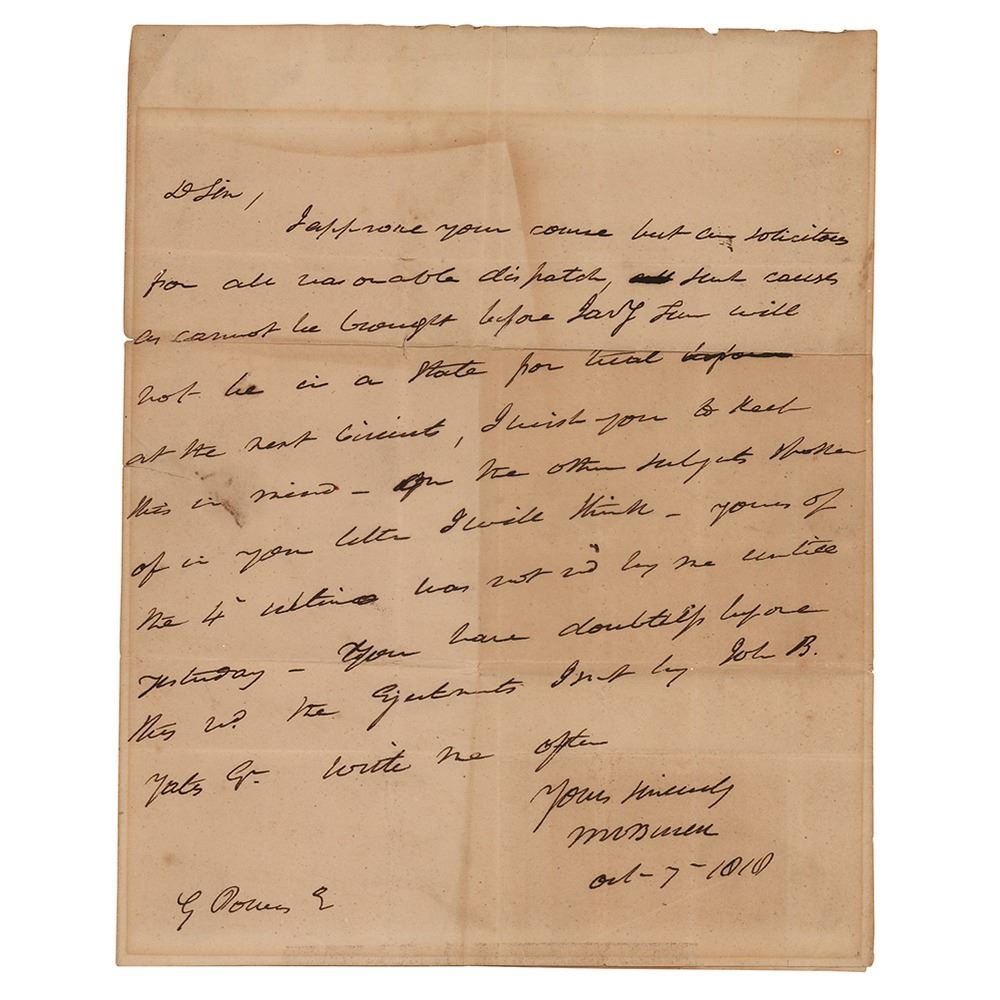 D Sir,
I approve your course but am solicitous
for all reasonable dispatch, such causes
as cannot be brought before Jany Term will
not be in a State for trial before
at the next Circuit, I wish you to keep
this in mind – On the other subjects spoken
of in your letter I will think – yours of
the 4th was not rd by me untill
yesterday – You have doubtless before
this rd the Ejectments I sent by John B.
Yates Er write me often
Yours sincerely
MVBuren
Oct 7 1818
G Powers E